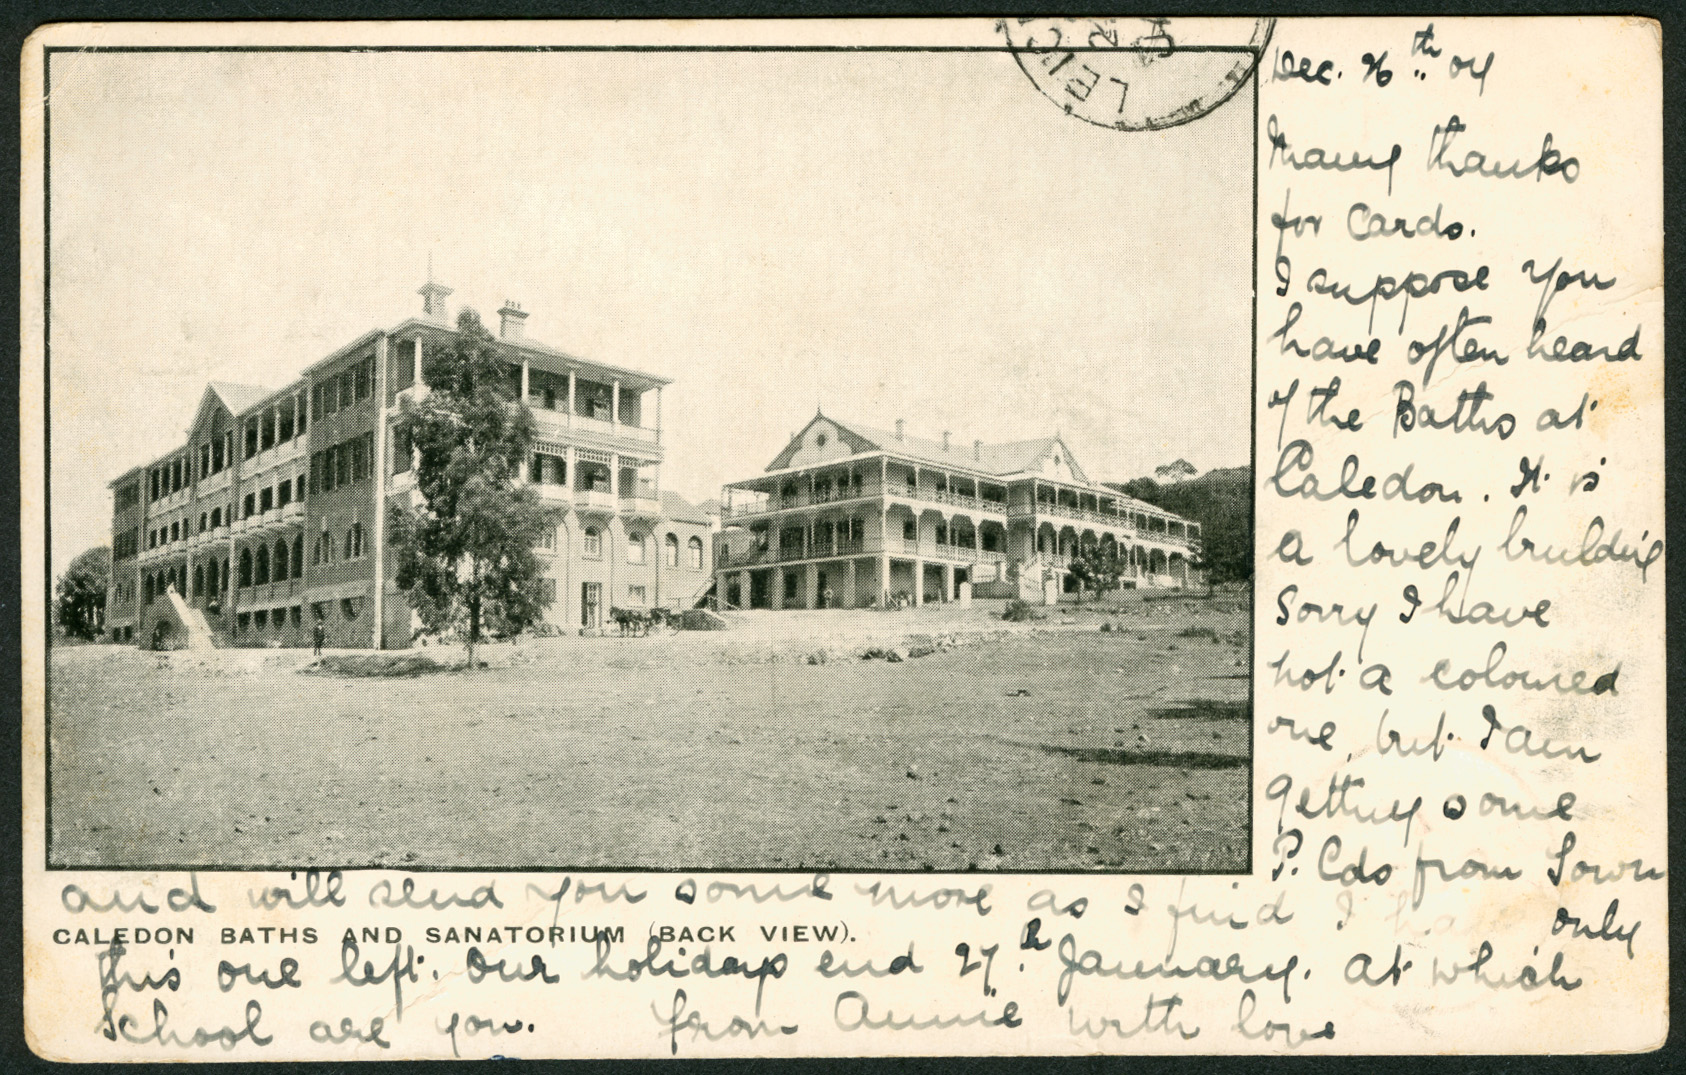 LEIC
Dec. 26th 04
Many thanks
for Cards.
I suppose you
have often heard
of the Baths at
Caledon. It is
a lovely buildin
Sorry I have
not a coloured
one, but I am
getting some
P. Cds from Town
and will send you some more as I find I have only
CALEDON BATHS AND SANATORIUM (BACK VIEW).
this one left. Our holidays end 27th January. At which
School are you. from Annie with love